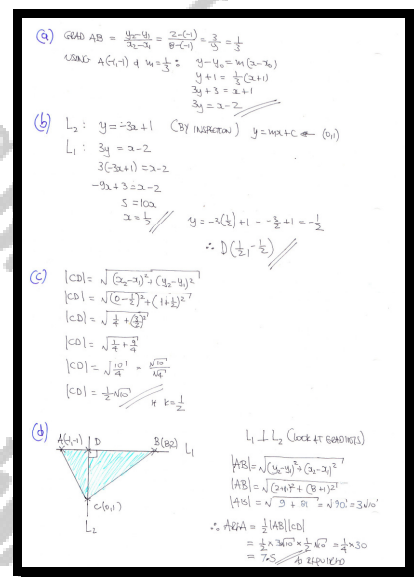 (a) GRAD AB = y₂-y₁/x₂-x₁ = 2-(-1)/8-(-1) = 3/9 = 1/3
USING A(-1,-1) & m=1/3: y-y₀=m(x-x₀)
y+1 = 1/3(x+1)
3y+3 = x+1
3y = x-2
(b) L₂: y=-3x+1 (BY INSPECTION) y=mx+c ← (0,1)
L₁: 3y = x-2
3(-3x+1) = x-2
-9x+3 = x-2
5 = 10x
x = 1/2 y = -3(1/2)+1 = -3/2+1 = -1/2
∴ D(1/2, -1/2)
(c) |CD| = √(x₂-x₁)²+(y₂-y₁)²
|CD| = √(0-1/2)²+(1+1/2)²
|CD| = √1/4+(3/2)²
|CD| = √1/4+9/4
|CD| = √10/4 = √10/√4
|CD| = 1/2√10
k=1/2
(d) A(-1,-1) D B(8,2) L₁
C(0,1)
L₂
L₁ ⊥ L₂ (LOOK AT GRADIENTS)
|AB| = √(y₂-y₁)²+(x₂-x₁)²
|AB| = √(2+1)²+(8+1)²
|AB| = √9+81 = √90 = 3√10
∴ AREA = 1/2|AB||CD|
= 1/2×3√10×1/2√10 = 1/4×30
= 7.5 AS REQUIRED